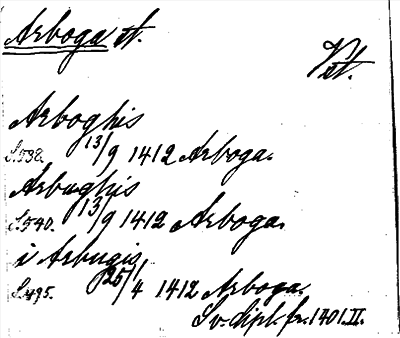 Arboga st.
Vstl.
Arboghis
S. 538. 13/9 1412 Arboga.
Arbughis
S. 540. 13/9 1412 Arboga.
i Arbugis
S. 495. 25/4 1412 Arboga.
Sv. dipl. fr. 1401. II.